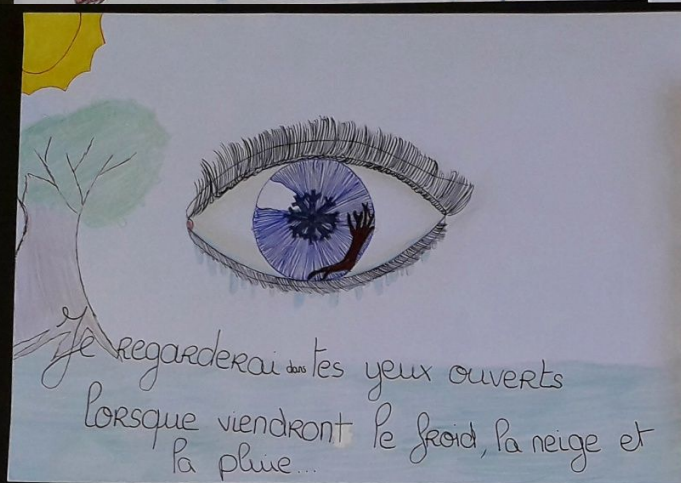 Je regarderai dans tes yeux ouverts
lorsque viendront le froid, la neige et
la pluie...